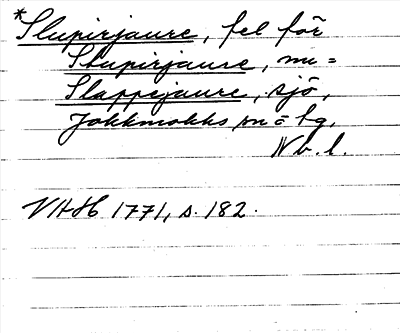 *Slupirjaure, fel för
Skupirjaure, nu =
Slappejaure, sjö,
Jokkmokks sn o. hg,
Nb. l.
VAH 1771, s. 182.